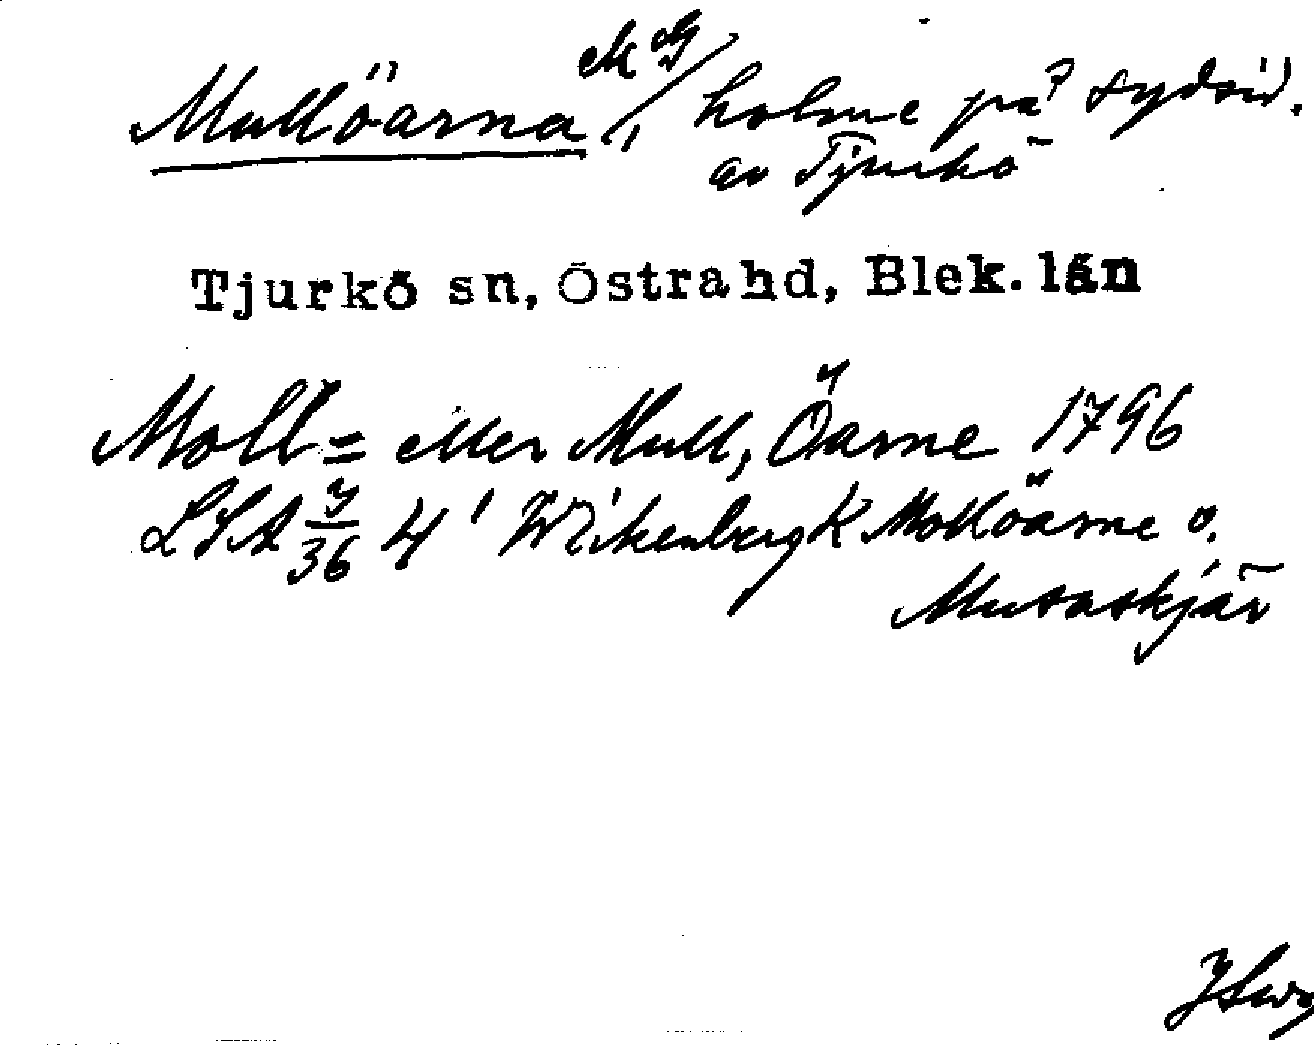 MG
Mullöarna, holme på sydsid.
av Tjurkö
Tjurkö sn, Östra hd, Blek. län
Moll= eller Mull, Öarne 1796
LSA 36 4' Wikenberg K Mollöarne o.
Musaskjär